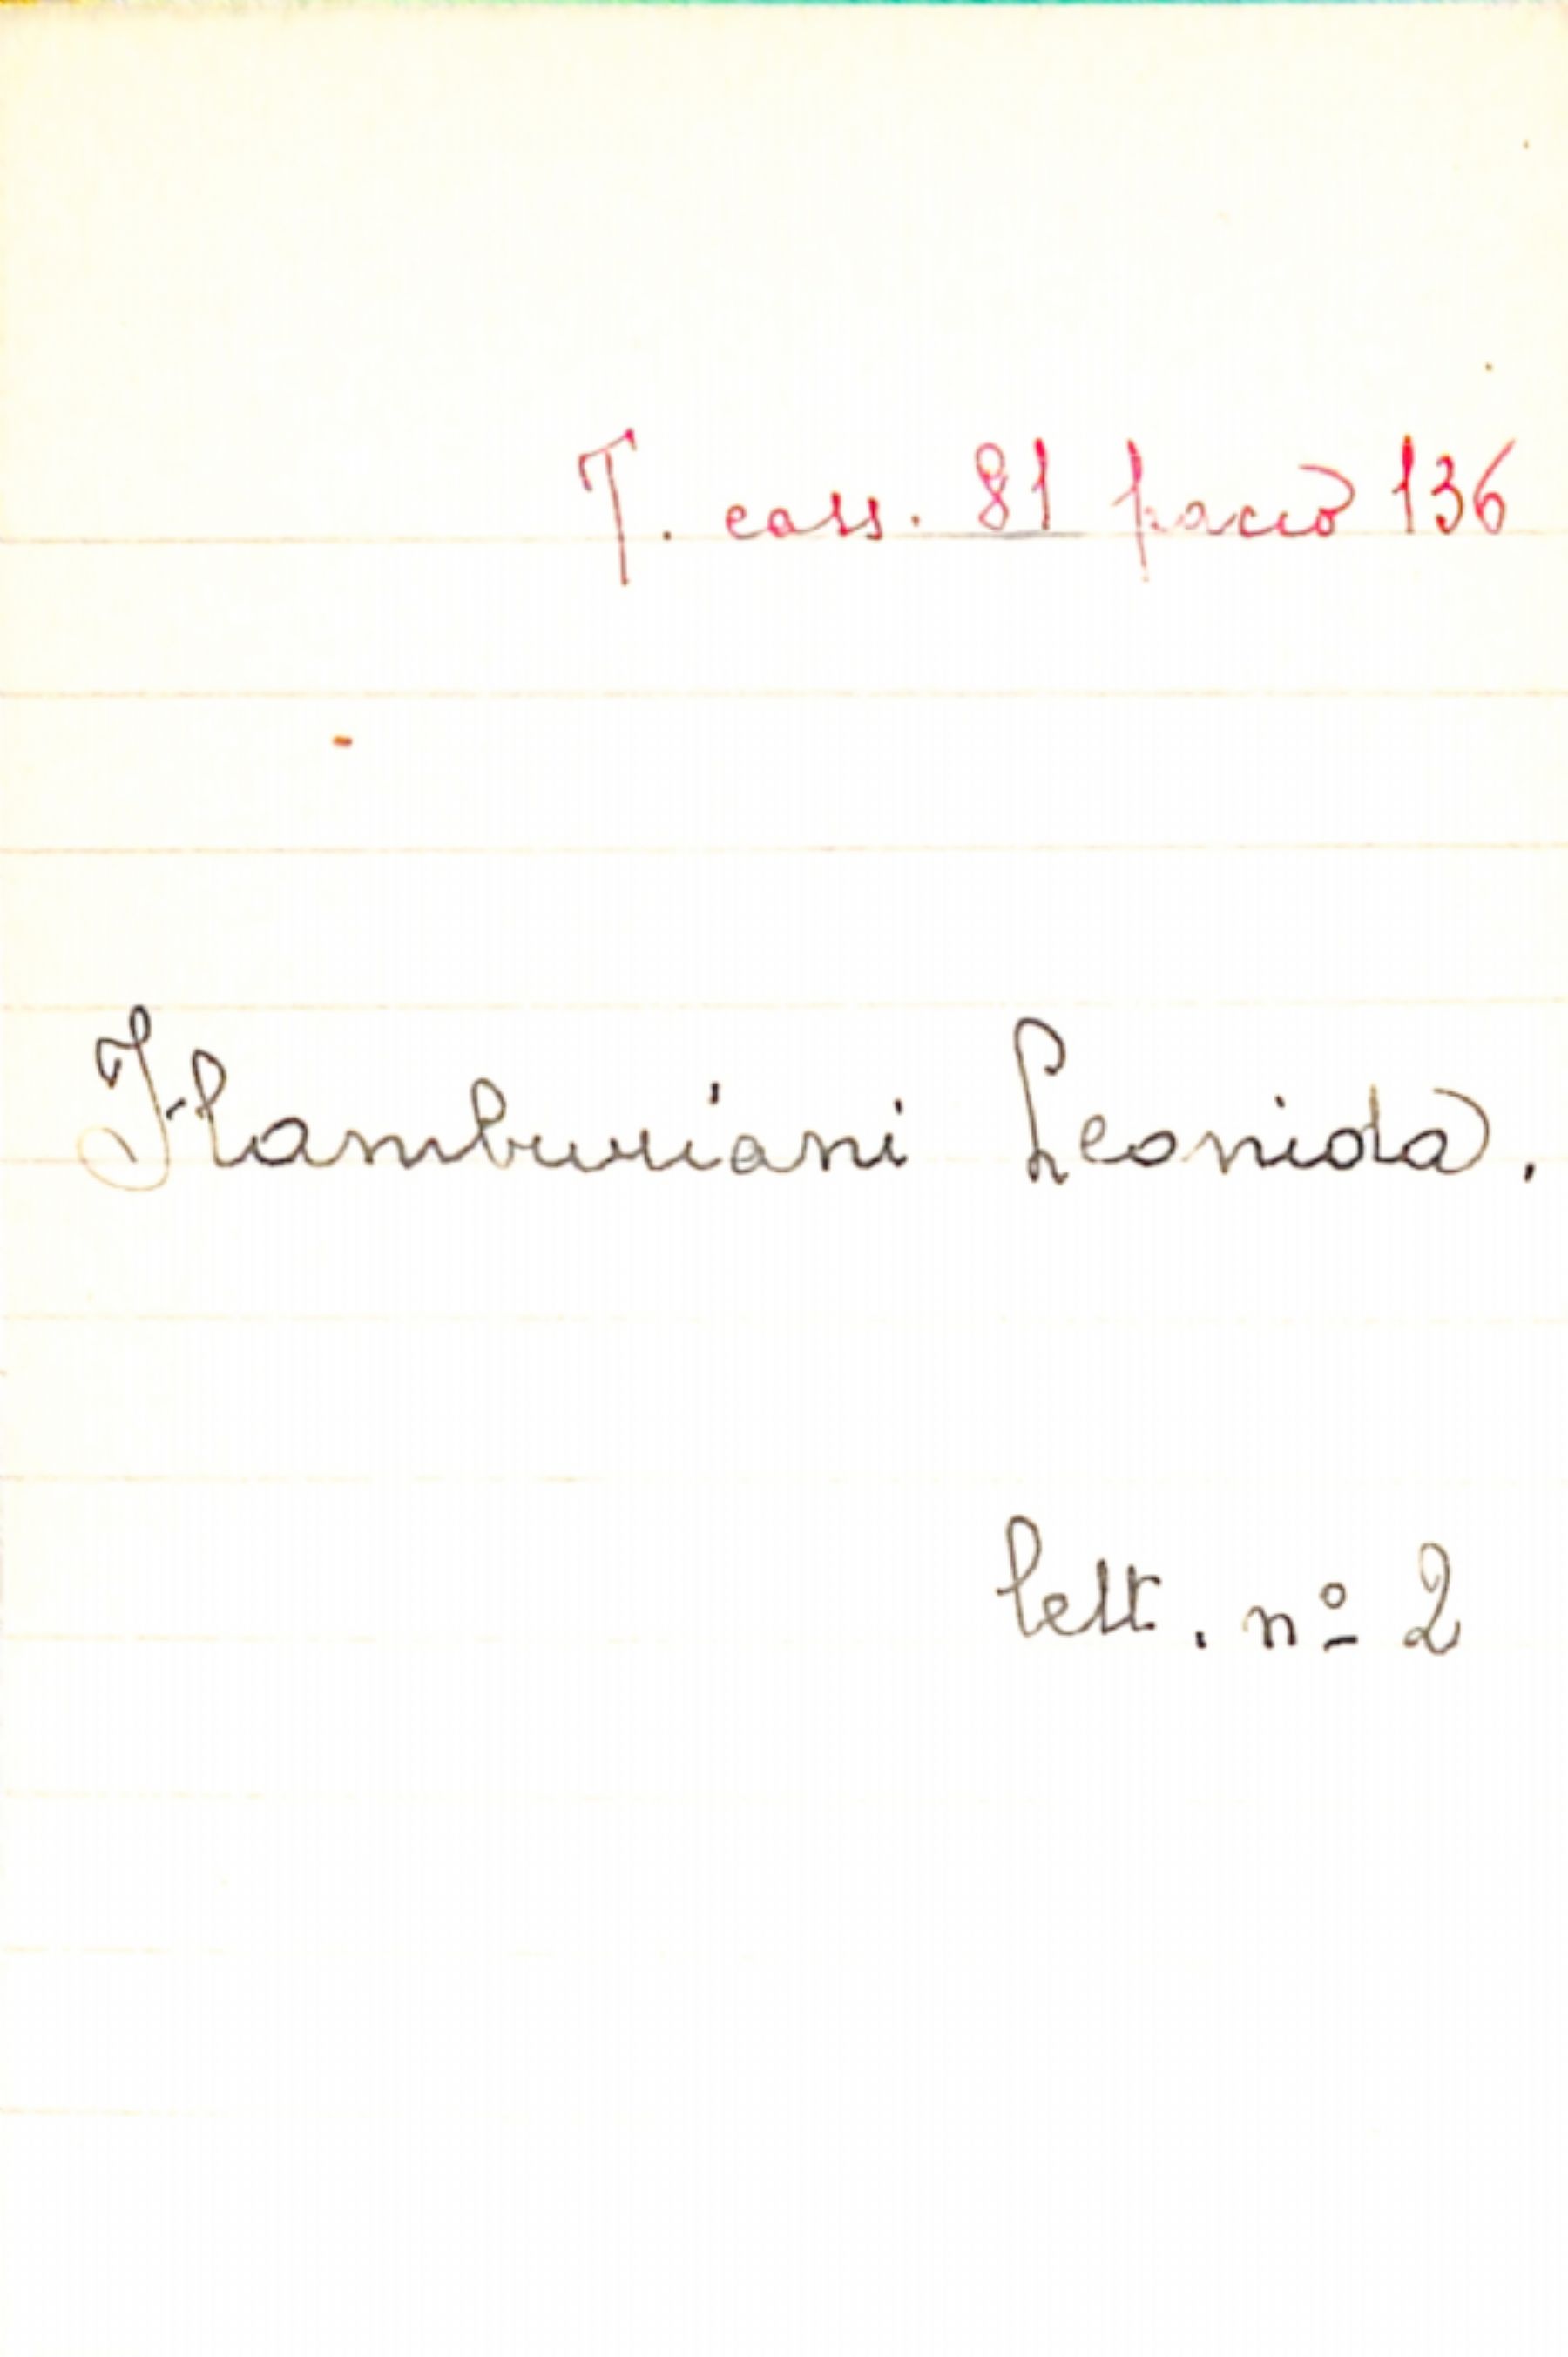 T. cass. 81 pacco 136
Flamburiani Leonida.
lett. nº 2